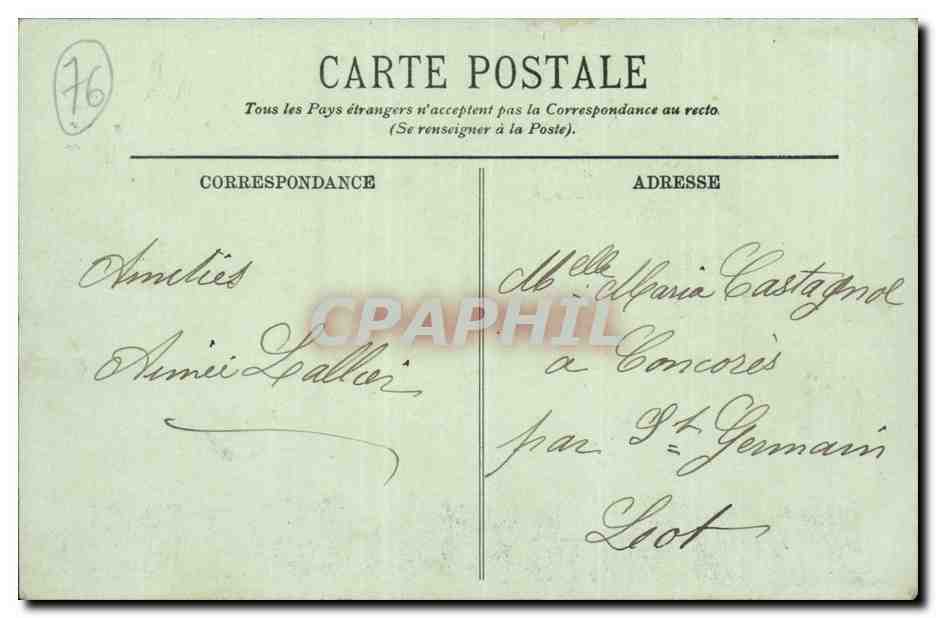 76
CARTE POSTALE
Tous les Pays étrangers n'acceptent pas la Correspondance au recto.
(Se renseigner à la Poste).
CORRESPONDANCE
ADRESSE
Amitiés
Aimée Lallier
Melle Maria Castagnol
a Concorès
par St Germain
Lot
CPAPHIL